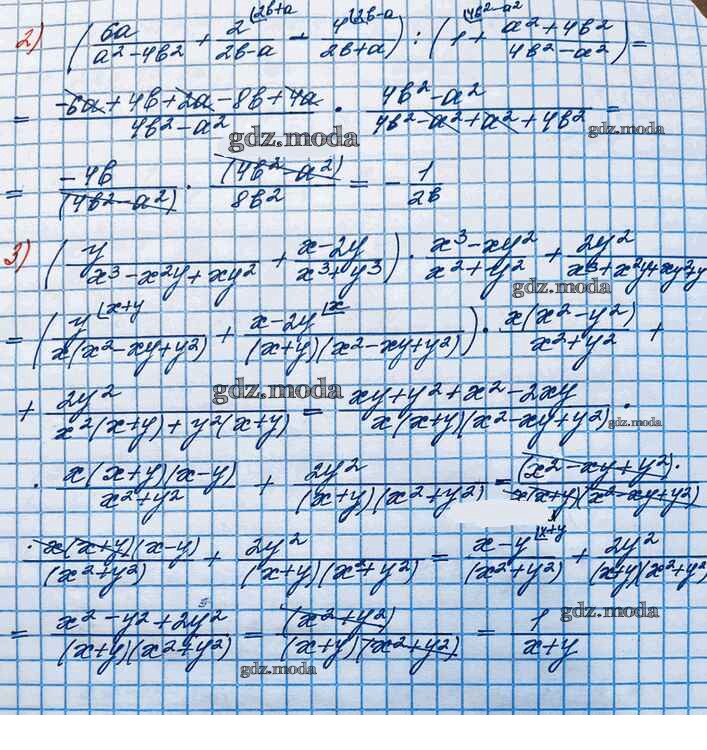 2) (6a/(a²-4b²) + 2⌊2b+a/(2b-a) - 4⌊2b-a/(2b+a)) : (1⌊4b²-a² + (a²+4b²)/(4b²-a²)) =
= (-6a+4b+2a-8b+4a)/(4b²-a²) · (4b²-a²)/(4b²-a²+a²+4b²) =
gdz.moda gdz.moda
= -4b/(4b²-a²) · (4b²-a²)/8b² = - 1/2b
3) (y/(x³-x²y+xy²) + (x-2y)/(x³+y³)) · (x³-xy²)/(x²+y²) + 2y²/(x³+x²y+xy²+y
gdz.moda
= (y⌊x+y/(x(x²-xy+y²)) + (x-2y⌊x)/((x+y)(x²-xy+y²))) · x(x²-y²)/(x²+y²) +
+ 2y²/(x²(x+y)+y²(x+y)) = (xy+y²+x²-2xy)/(x(x+y)(x²-xy+y²)) ·
gdz.moda gdz.moda
· x(x+y)(x-y)/(x²+y²) + 2y²/((x+y)(x²+y²)) = (x²-xy+y²)·/(x(x+y)(x²-xy+y²))
· x(x+y)(x-y)/(x²+y²) + 2y²/((x+y)(x²+y²)) = x-y⌊x+y/(x²+y²) + 2y²/((x+y)(x²+y²)
= (x²-y²+2y²)/((x+y)(x²+y²)) = (x²+y²)/((x+y)(x²+y²)) = 1/(x+y)
gdz.moda gdz.moda